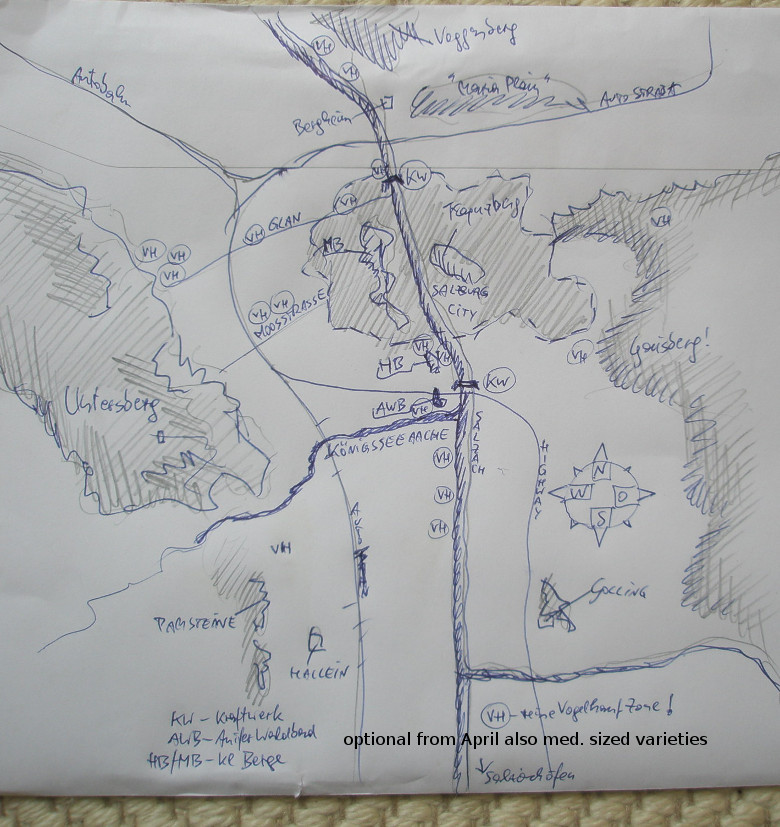 VH
Voggenberg
VH
Autobahn
"Maria Plain"
AUTOSTRADA
Bergheim
VH
KW
VH
Kapuzbg
VH
GLAN
VH
MB
VH
VH
VH
SALZBURG
CITY
VH
VH
MOOSSTRASSE
VH
VH
VH
Gaisberg!
HB
KW
Untersberg
AWB
VH
KÖNIGSSEEACHE
SALZACH
HIGHWAY
VH
N
W
O
S
VH
VH
VH
GOLLING
HALLEIN
KW - Kraftwerk
AWB - Anifer Waldbad
HB/MB - kl Berge
VH
Zone!
optional from April also med. sized varieties